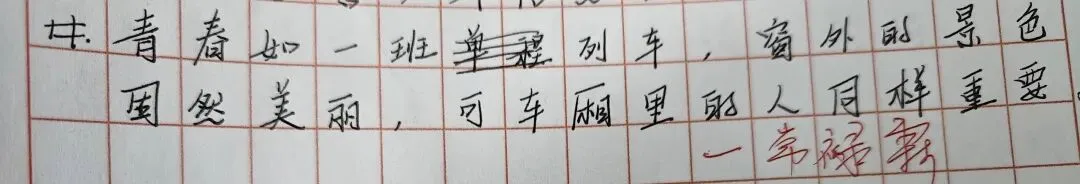 廿. 青春如一班单程列车，窗外的景色
固然美丽，可车厢里的人同样重要。
一常